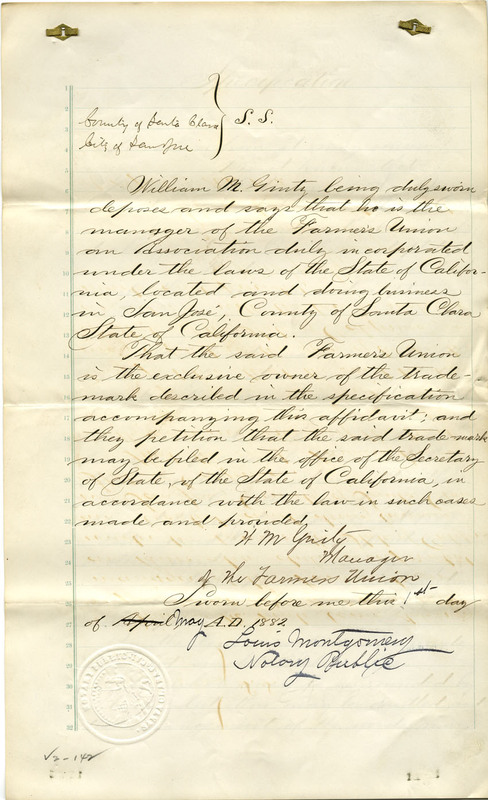 County of Santa Clara
City of San Jose
} S. S.
William M. Ginty being duly sworn
deposes and says that he is the
manager of the Farmers Union
an Association duly incorporated
under the laws of the State of Califor-
nia, located and doing business
in San José, County of Santa Clara
State of California.
That the said Farmers Union
is the exclusive owner of the trade-
mark described in the specification
accompanying this affidavit; and
they petition that the said trade-mark
may be filed in the office of the Secretary
of State, of the State of California, in
accordance with the law in such cases
made and provided,
W M Ginty
Manager
of The Farmers Union
Sworn before me this 1st day
of April May A.D. 1882
Louis Montgomery
Notary Public
V2-142